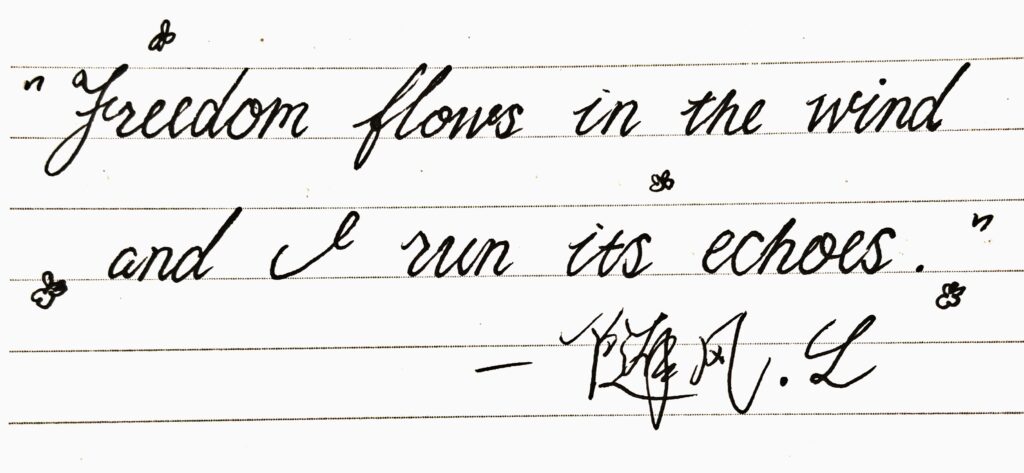 "Freedom flows in the wind
and I run its echoes."
— 随风.L